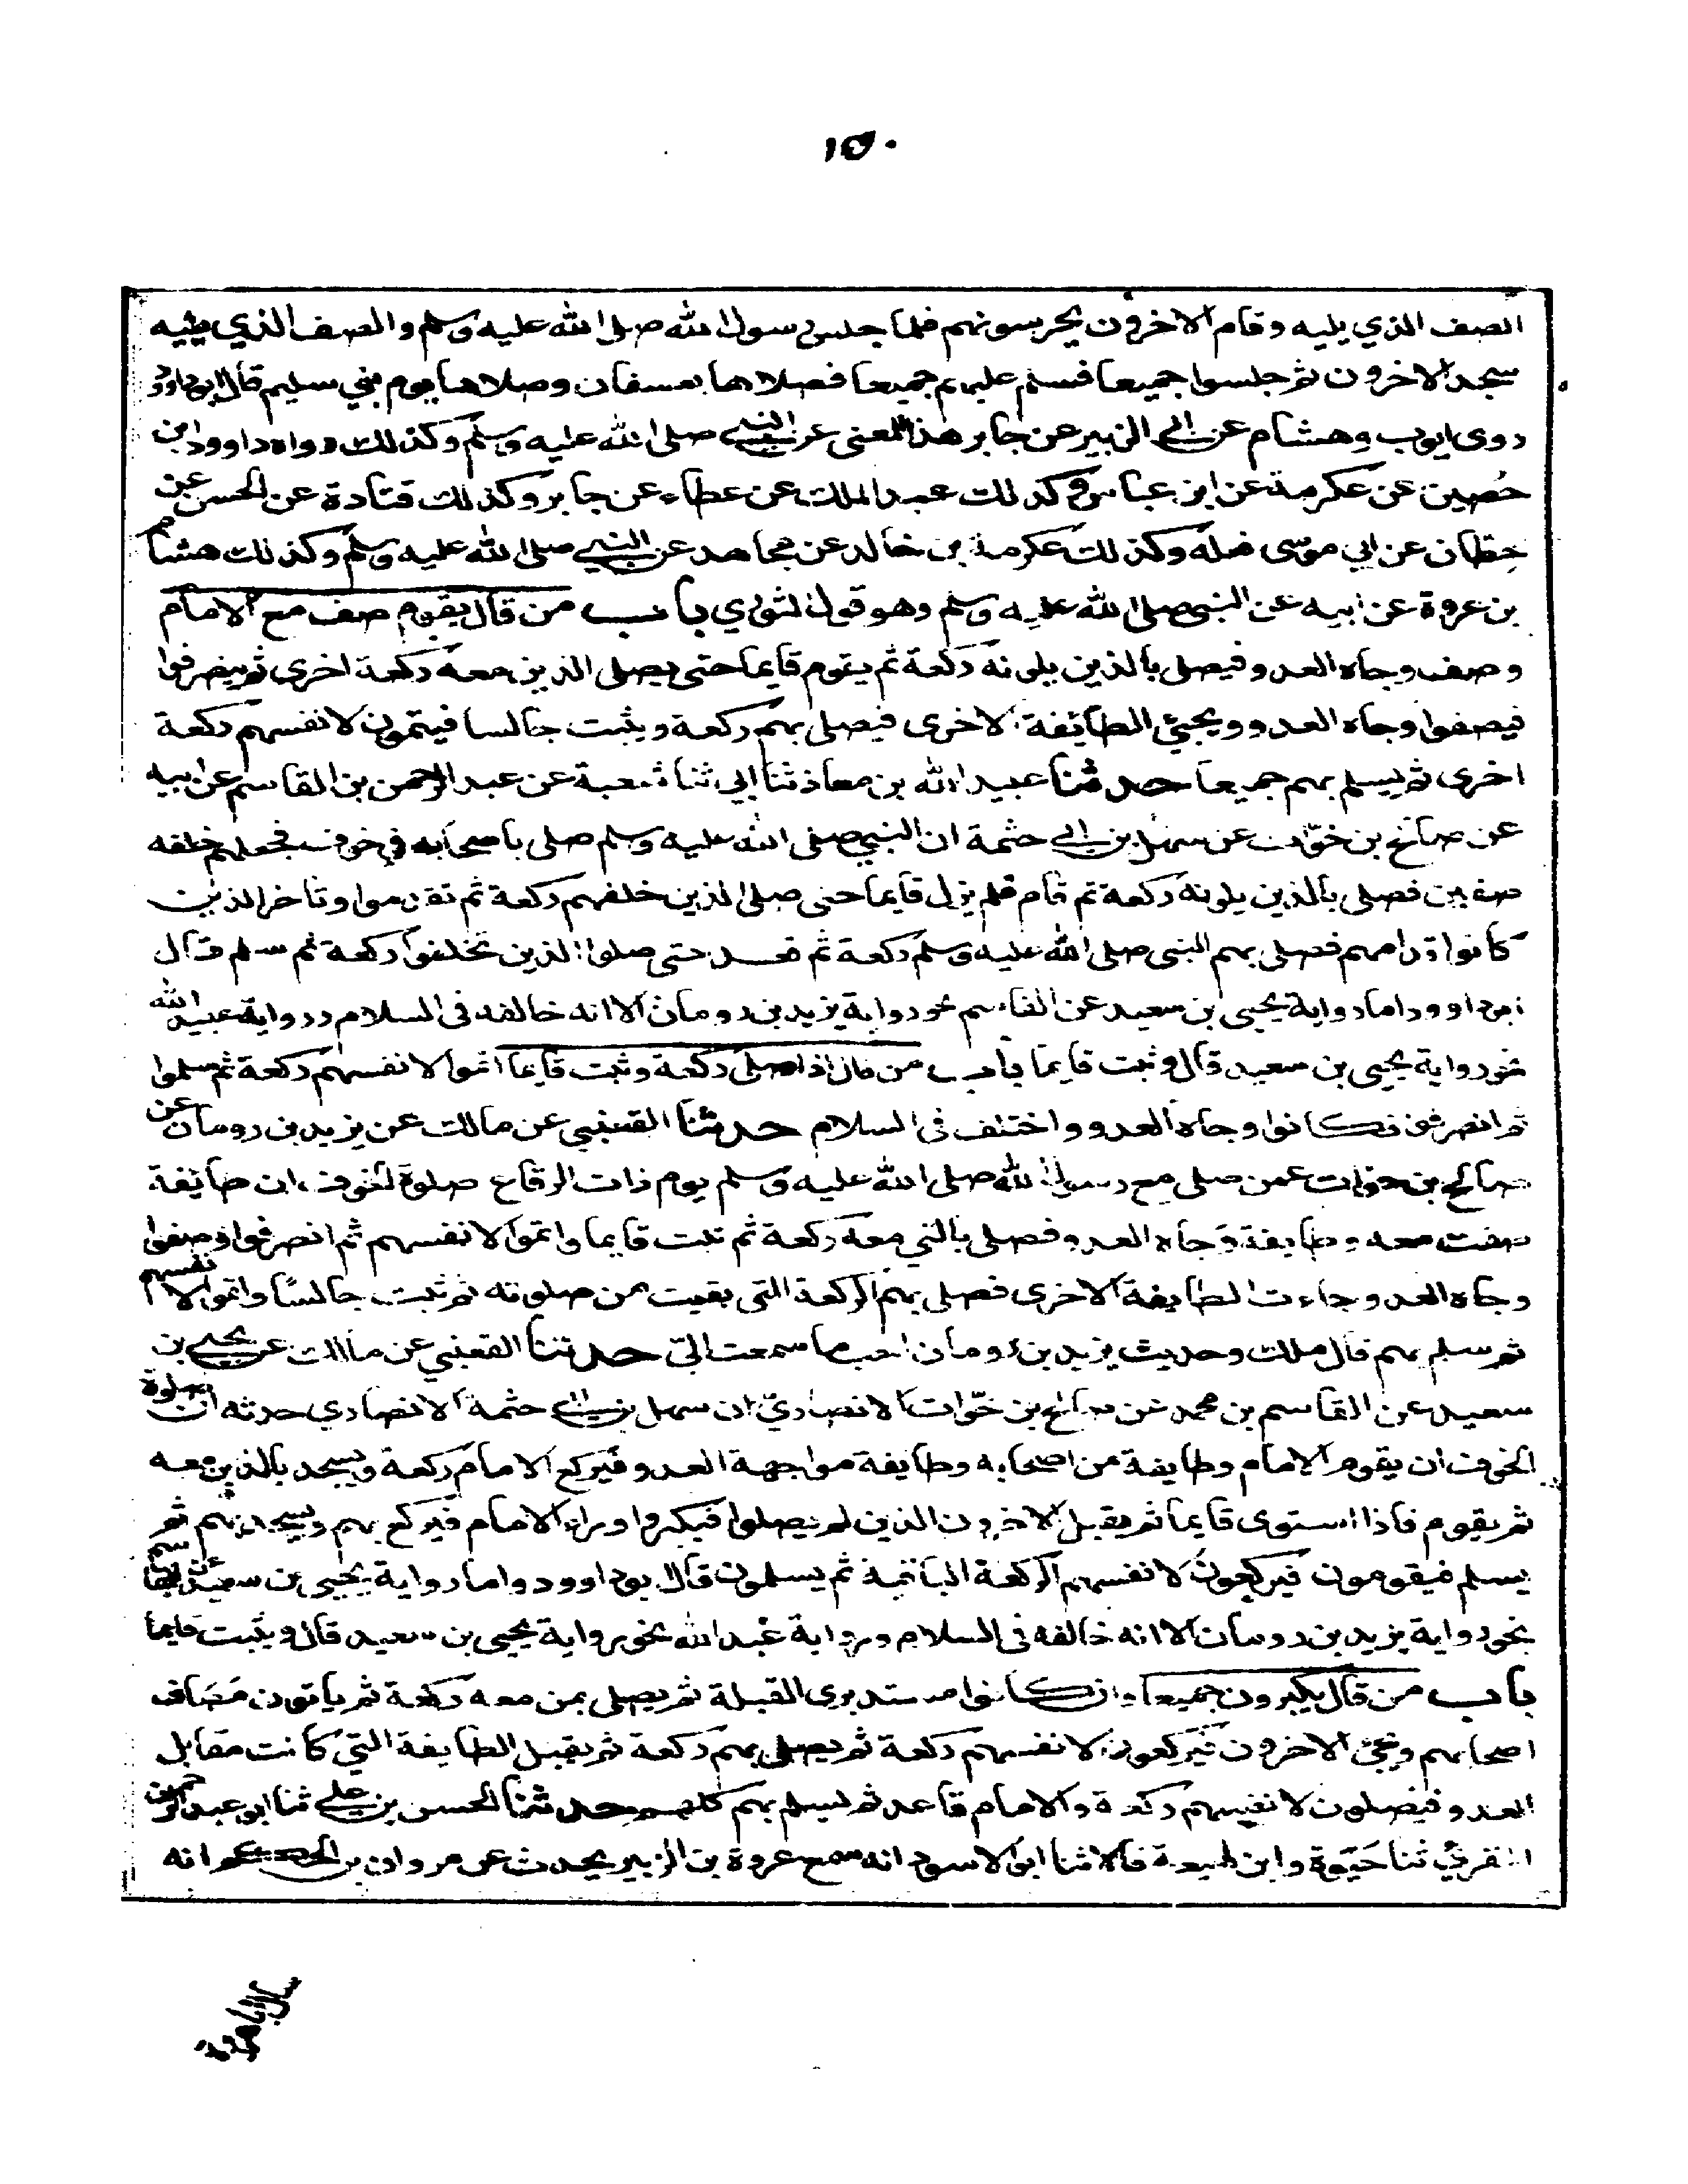 ١٥٠
الصف الذي يليه وقام الاخرون يحرسونهم فلما جلس رسول الله صلى الله عليه وسلم والصف الذي يليه
سجد الاخرون ثم جلسوا جميعا فسلم عليهم جميعا فصلاها بعسفان وصلاها يوم بني سليم قال ابو داوود
روى ايوب وهشام عن ابي الزبير عن جابر هذا المعنى عن النبي صلى الله عليه وسلم وكذلك رواه داوود ابن
حُصين عن عكرمة عن ابن عباس وكذلك عبد الملك عن عطاء عن جابر وكذلك قتادة عن الحسن عن
حِطان عن ابي موسى فعله وكذلك عكرمة بن خالد عن مجاهد عن النبي صلى الله عليه وسلم وكذلك هشام
بن عروة عن ابيه عن النبي صلى الله عليه وسلم وهو قول الثوري باب من قال يقوم صف مع الامام
وصف وجاه العدو فيصلي بالذين يلونه ركعة ثم يقوم قايما حتى يصلي الذين معه ركعة اخرى ثم ينصرفوا
فيصفوا وجاه العدو ويجيئ الطائفة الاخرى فيصلي بهم ركعة ويثبت جالسا فيتمون لانفسهم ركعة
اخرى ثم يسلم بهم جميعا حدثنا عبيد الله بن معاذ ثنا ابي ثنا شعبة عن عبد الرحمن بن القاسم عن ابيه
عن صالح بن خوّات عن سهل بن ابي حثمة ان النبي صلى الله عليه وسلم صلى باصحابه في خوف فجعلهم خلفه
صفين فصلى بالذين يلونه ركعة ثم قام فلم يزل قايما حتى صلى الذين خلفهم ركعة ثم تقدموا وتاخر الذين
كانوا قدامهم فصلى بهم النبي صلى الله عليه وسلم ركعة ثم قعد حتى صلوا الذين تخلفوا ركعة ثم سلم قال
ابو داوود اما رواية يحيى بن سعيد عن القاسم نحو رواية يزيد بن رومان الا انه خالفه في السلام ورواية عبيد الله
نحو رواية يحيى بن سعيد قال وثبت قايما باب من قال اذا صلى ركعة وثبت قايما اتموا لانفسهم ركعة ثم سلموا
ثم انصرفوا فكانوا وجاه العدو واختلف في السلام حدثنا القعنبي عن مالك عن يزيد بن رومان عن
صالح بن خوات عمن صلى مع رسول الله صلى الله عليه وسلم يوم ذات الرقاع صلوة الخوف ان طائفة
صفت معه وطايفة وجاه العدو فصلى بالتي معه ركعة ثم ثبت قايما واتموا لانفسهم ثم انصرفوا وصفوا
وجاه العدو وجاءت الطايفة الاخرى فصلى بهم الركعة التي بقيت من صلوته ثم ثبت جالسًا واتموا لانفسهم
ثم سلم بهم قال ملك وحديث يزيد بن رومان احب ما سمعت اليّ حدثنا القعنبي عن مالك عن يحيى بن
سعيد عن القاسم بن محمد عن صالح بن خوّات الانصاريّ ان سهل بن ابي حثمة الانصاري حدثه ان صلوة
الخوف ان يقوم الامام وطايفة من اصحابه وطايفة مواجهة العدو فيركع الامام ركعة ويسجد بالذين معه
ثم يقوم فاذا استوى قايما ثم يقبل الاخرون الذين لم يصلوا فيكبروا وراء الامام فيركع بهم ويسجد بهم ثم
يسلم فيقومون فيركعون لانفسهم الركعة الباقية ثم يسلمون قال ابو داوود واما رواية يحيى بن سعيد عن القاسم
نحو رواية يزيد بن رومان الا انه خالفه في السلام ورواية عبد الله نحو رواية يحيى بن سعيد قال ويثبت قايما
باب من قال يكبرون جميعا وان كانوا مستدبرى القبلة ثم يصلي بمن معه ركعة ثم ياتون مَصَاف
اصحابهم ويجئ الاخرون فيركعون لانفسهم ركعة ثم يصلي بهم ركعة ثم يقبل الطايفة التي كانت مقابل
العدو فيصلون لانفسهم ركعة والامام قاعد ثم ليسلم بهم كلهم حدثنا الحسن بن علي ثنا ابو عبد الرحمن
المقرئ ثنا حَيْوة وابن لهيعة قالا ثنا ابو الاسود انه سمع عروة بن الزبير يحدث عن مروان بن الحكم انه